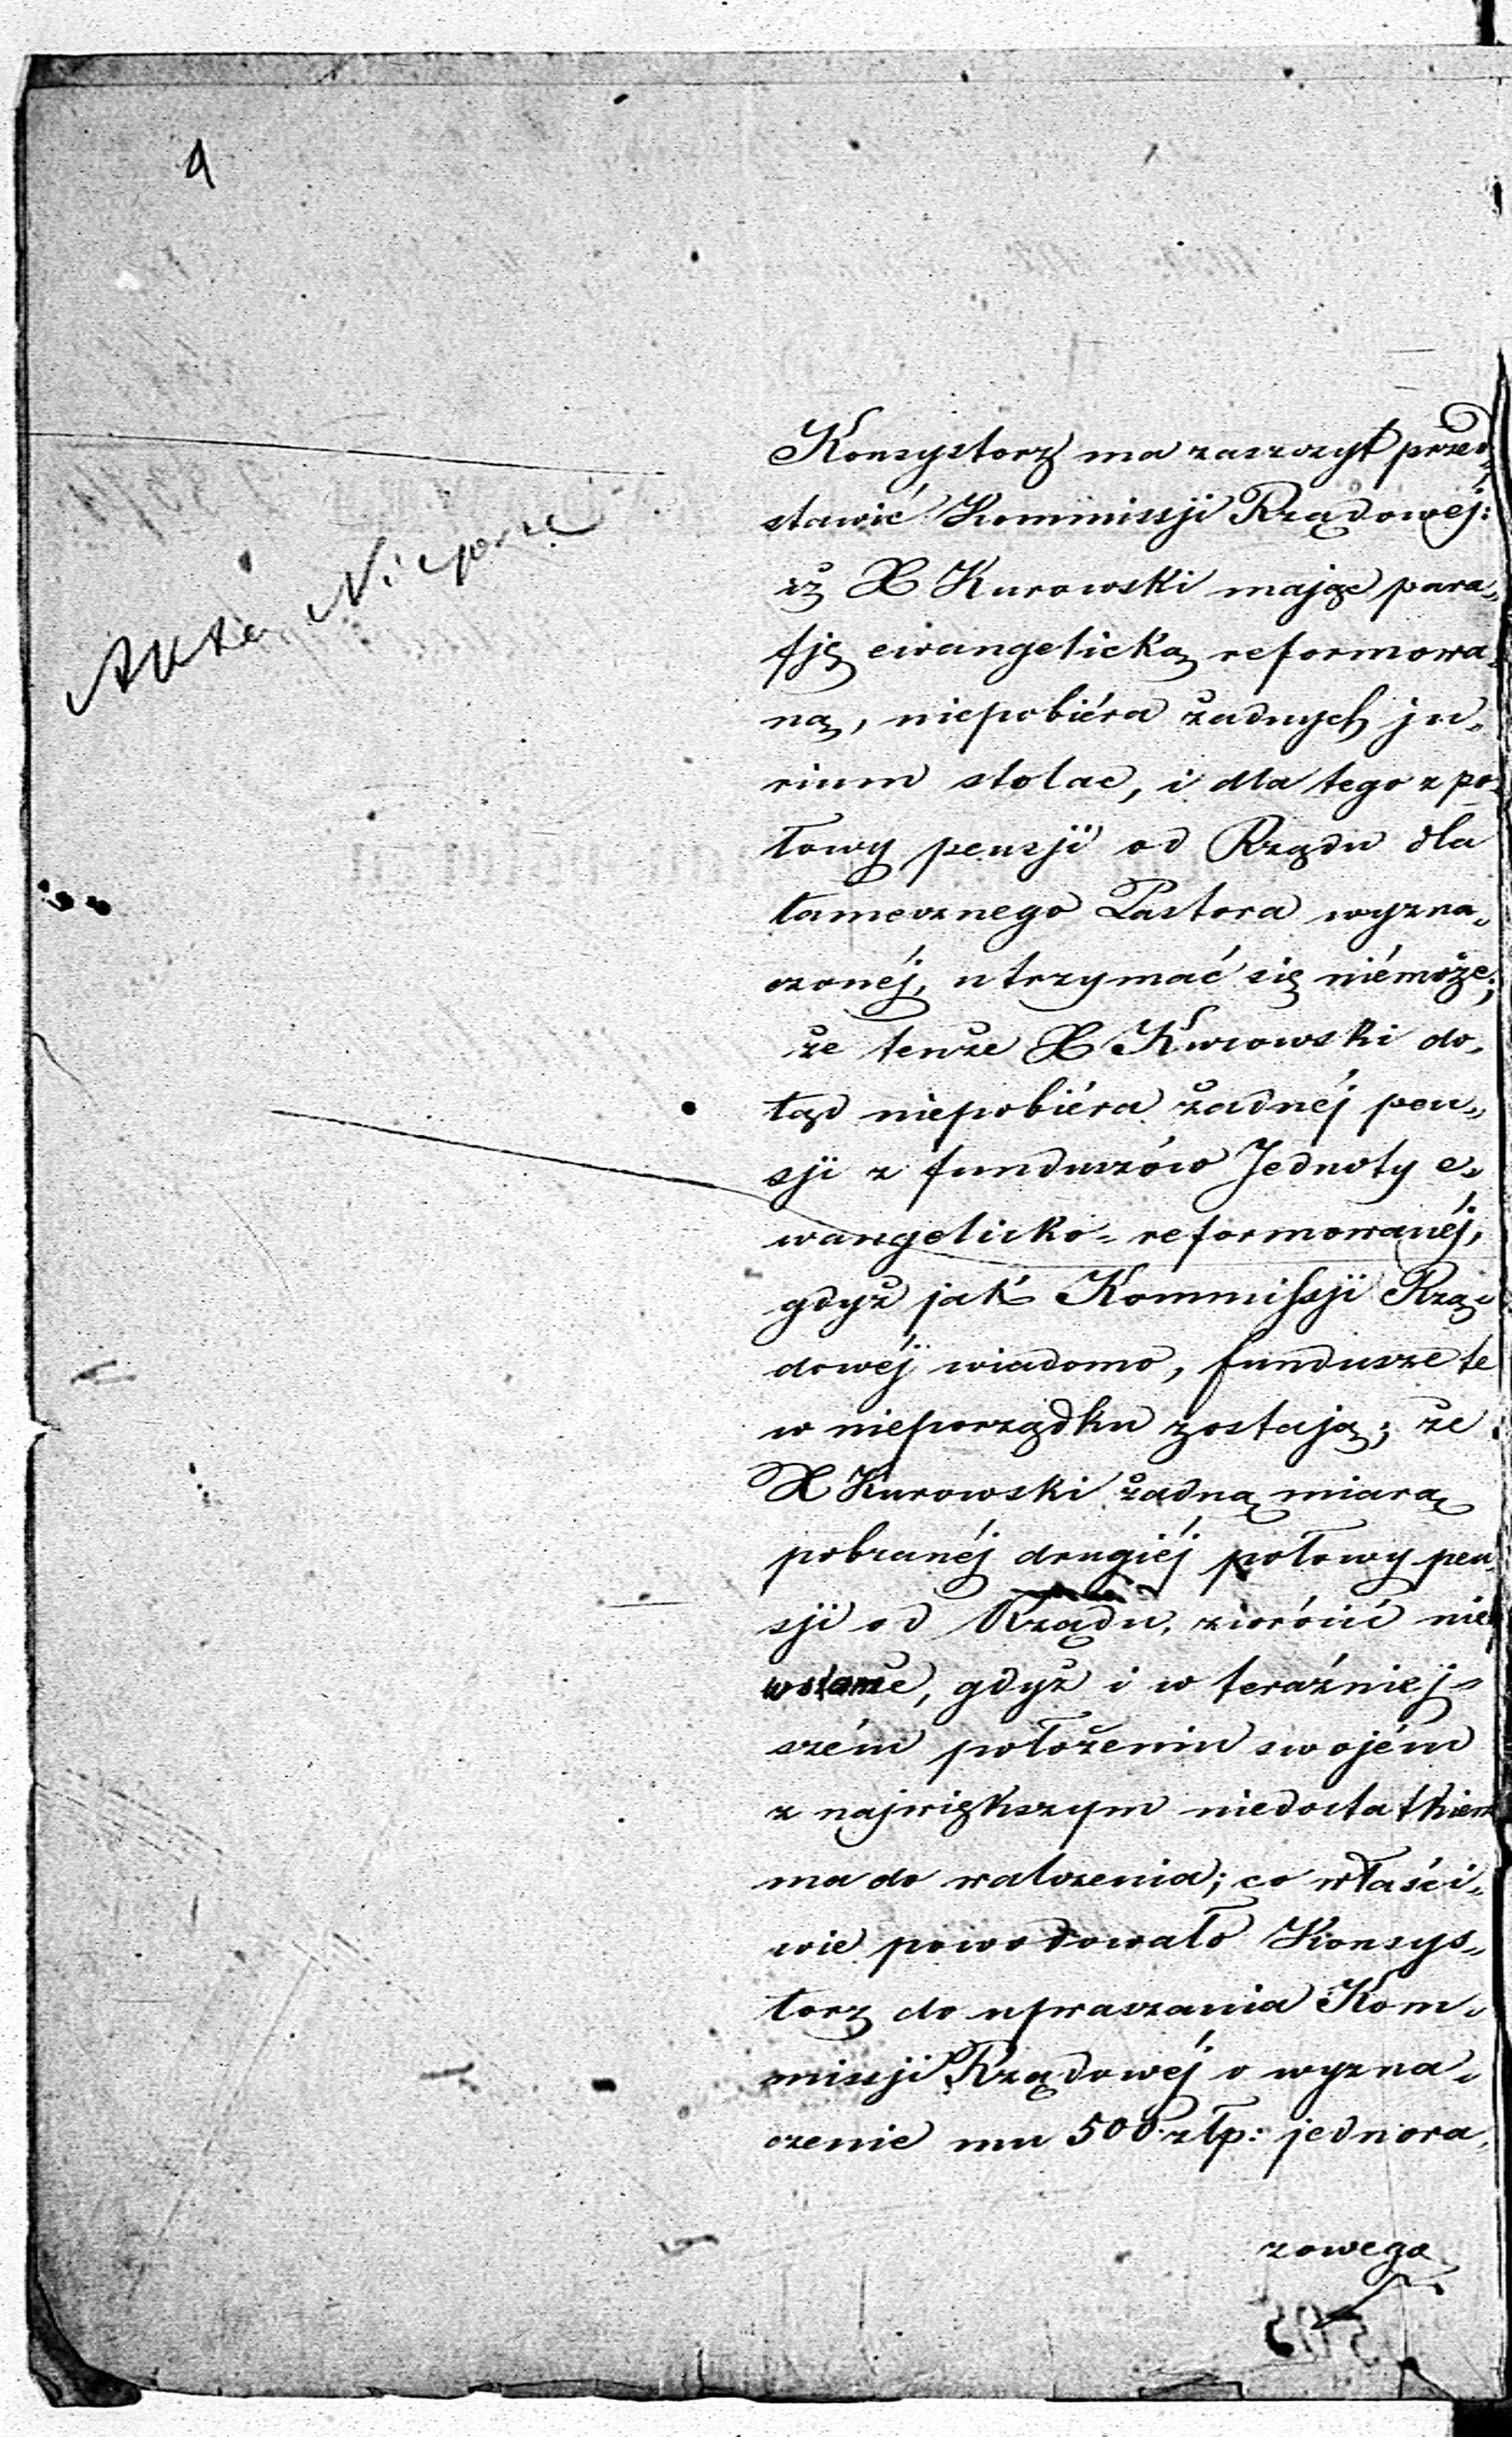 4
Akta Nieporz
Konsystorz ma zaszczyt przed„
stawić Kommissji Rządowéj:
iż X Kurowski mając para„
fję ewangelicką reformowa„
ną, niepobiéra żadnych ju„
rium stolae, i dla tego z po„
łowy pensji od Rządu dla
tamecznego Pastora wyzna„
czonéj, utrzymać się niémoże;
że tenże X Kurowski do„
tąd niepobiéra żadnéj pen„
sji z funduszów Jednoty e„
wangelicko-reformowanéj,
gdyż jak Kommissji Rzą„
dowéj wiadomo, fundusze te
w nieporządku zostają; że
X Kurowski żadną miarą
pobranéj drugiéj połowy pen„
sji od Rządu, zwrócić nie
wstanie, gdyż i w teraźniej„
szém położeniu swojém
z największym niedostatkiem
ma do walczenia; co właści„
wie powodowało Konsys„
torz do upraszania Kom„
missji Rządowéj o wyzna„
czenie mu 500 złp: jednora„
zowego